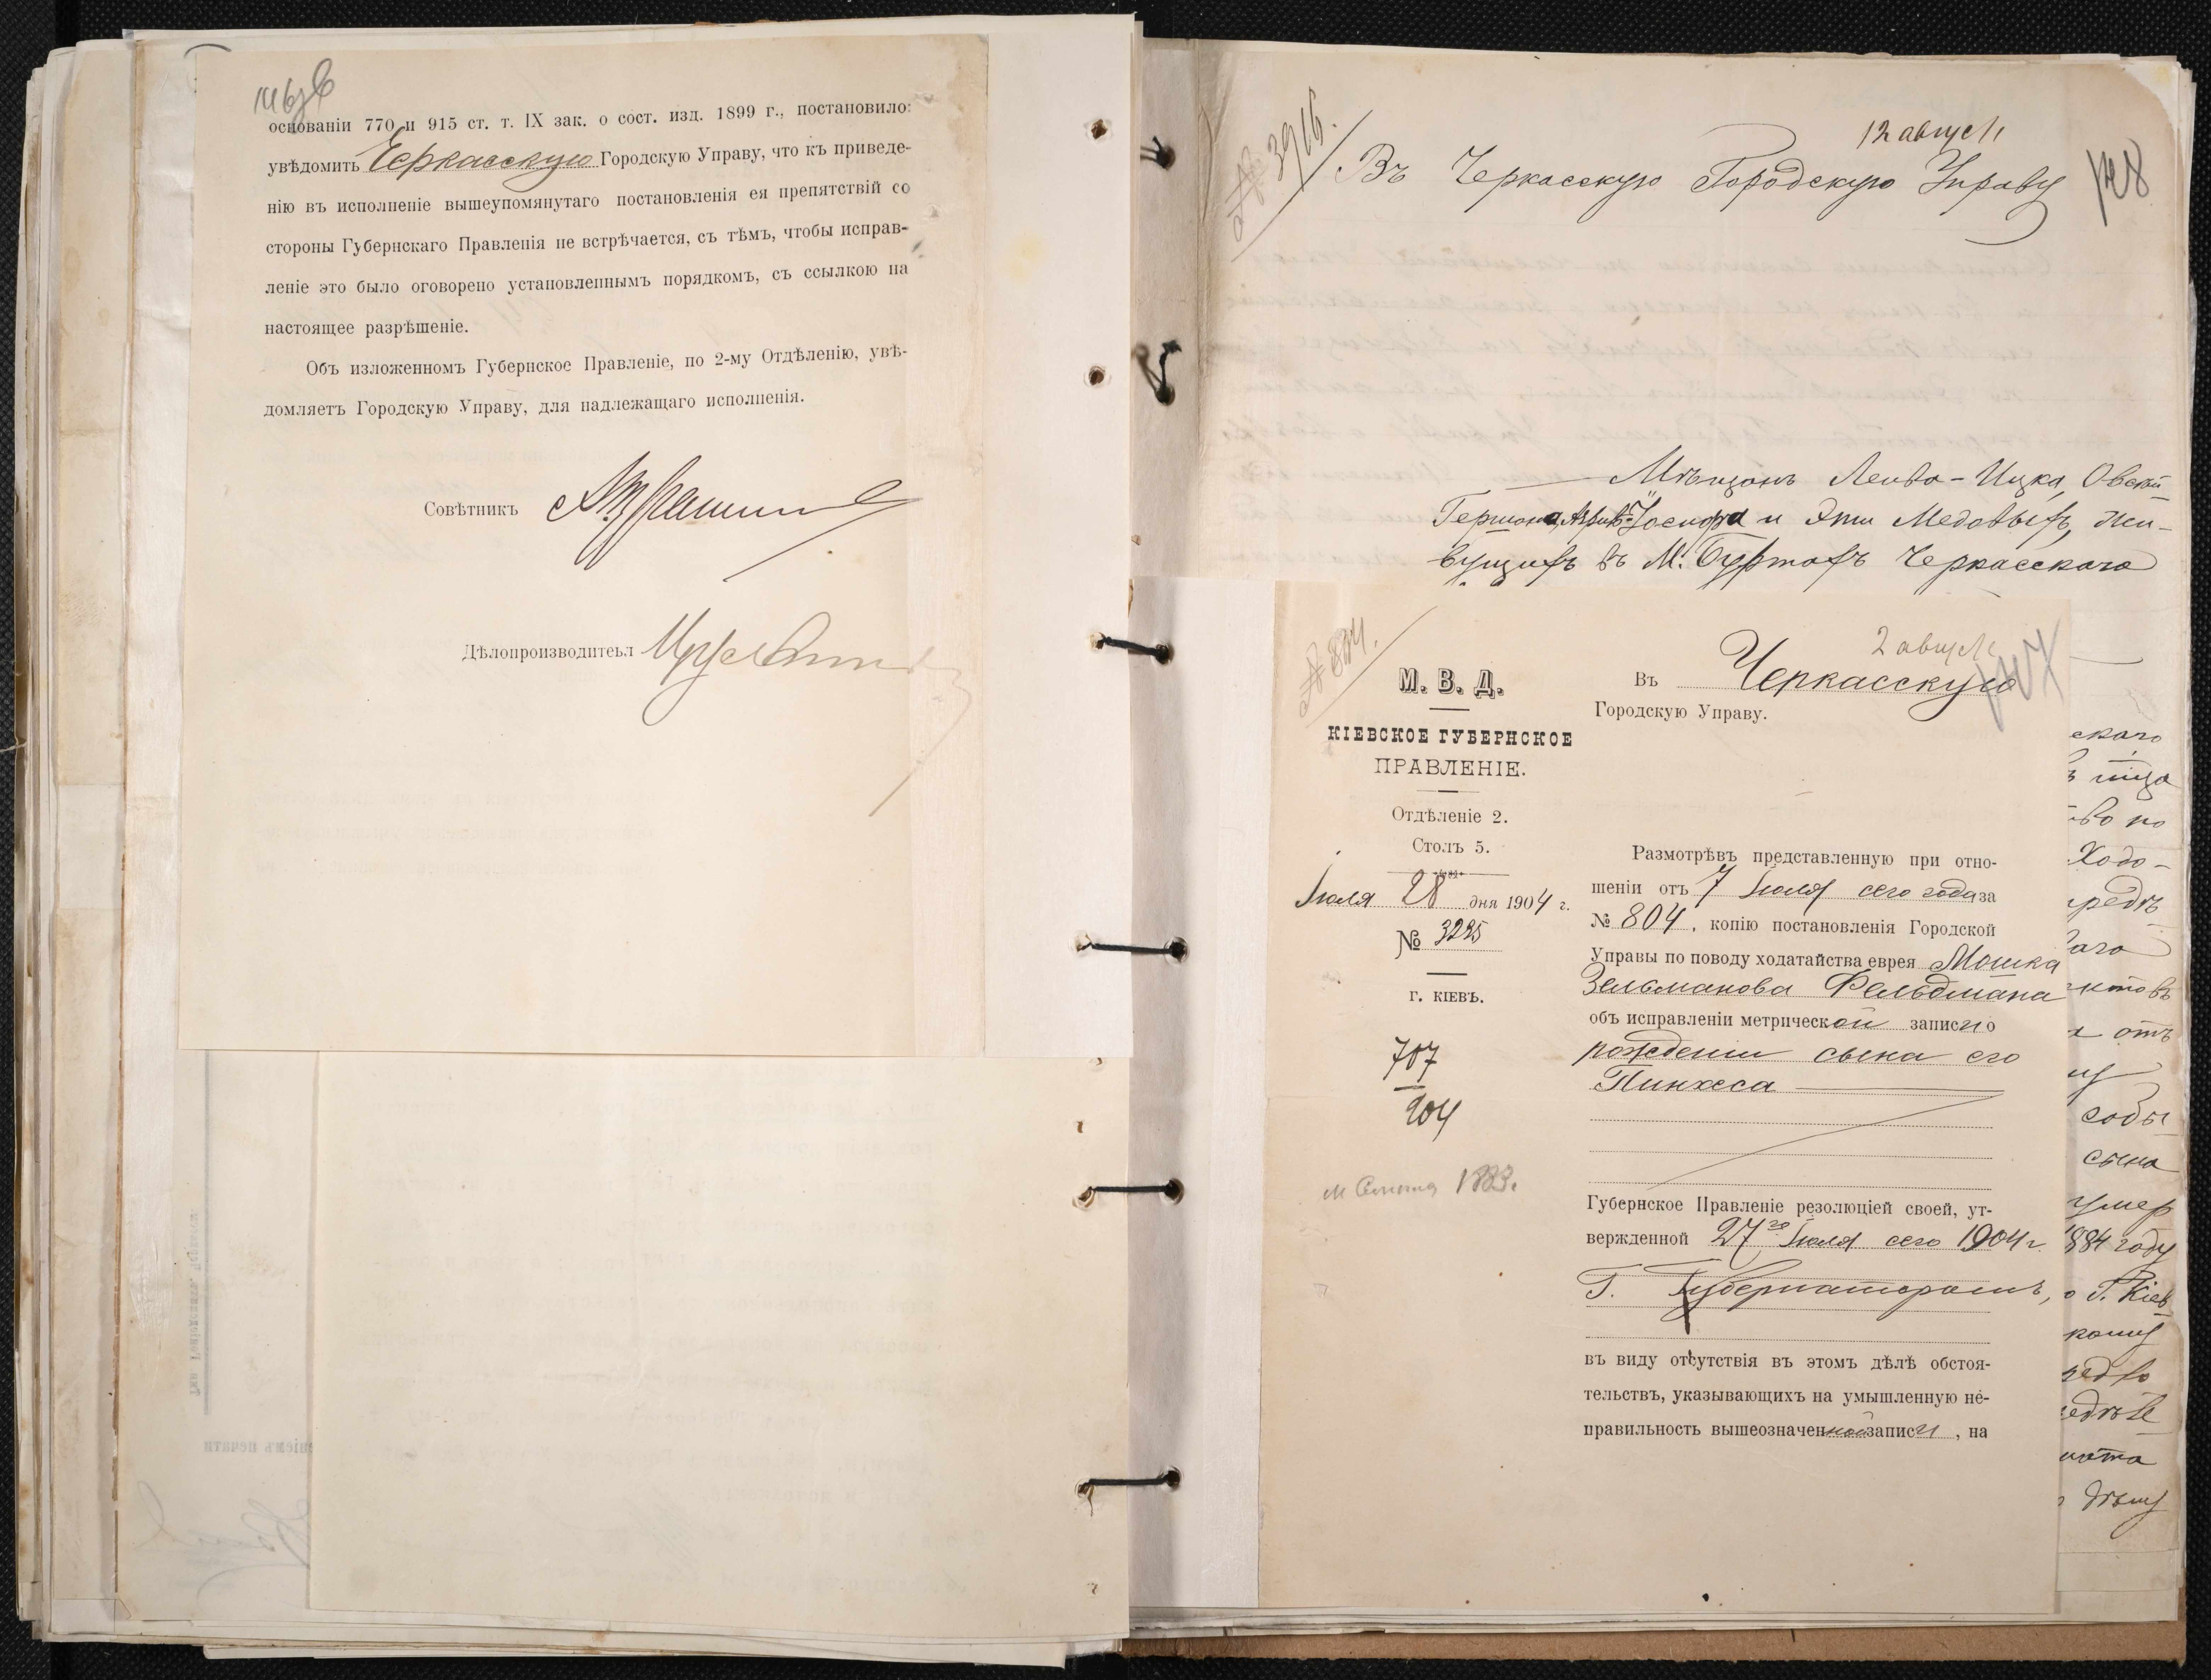 основаніи 770 и 915 ст. т. IX зак. о сост. изд. 1899 г., постановило:
увѣдомить Черкасскую Городскую Управу, что къ приведе-
нію въ исполненіе вышеупомянутаго постановленія ея препятствій со
стороны Губернскаго Правленія не встрѣчается, съ тѣмъ, чтобы исправ-
леніе это было оговорено установленнымъ порядкомъ, съ ссылкою на
настоящее разрѣшеніе.
Объ изложенномъ Губернское Правленіе, по 2-му Отдѣленію, увѣ-
домляетъ Городскую Управу, для надлежащаго исполненія.
Совѣтникъ
Дѣлопроизводитеьл
№ 3916.
12 август
148
Въ Черкасскую Городскую Управу
Мѣщанъ Лейба-Ицка, Овсѣй-
Гершона, Іосифа и Эти Медовыхъ, жи-
вущихъ въ М. Буртахъ Черкасскаго
№ 834.
2 август
147
М. В. Д.
КІЕВСКОЕ ГУБЕРНСКОЕ
ПРАВЛЕНІЕ.
Отдѣленіе 2.
Столъ 5.
Іюля 28 дня 1904 г.
№ 3225
г. КІЕВЪ.
707
904
1883.
Въ Черкасскую
Городскую Управу.
Размотрѣвъ представленную при отно-
шеніи отъ 7 Іюля сего года за
№ 804, копію постановленія Городской
Управы по поводу ходатайства еврея Мошка
Зельманова Фельдмана
объ исправленіи метрической записи о
рожденіи сына его
Пинхеса
Губернское Правленіе резолюціей своей, ут-
вержденной 27го Іюля сего 1904 г.
Г. Губернаторомъ,
въ виду отсутствія въ этомъ дѣлѣ обстоя-
тельствъ, указывающихъ на умышленную не-
правильность вышеозначенной записи, на
скаго
во по
Ходо-
редъ
отъ
собы
сына
умер
884 году
о Г. Кіев
кому